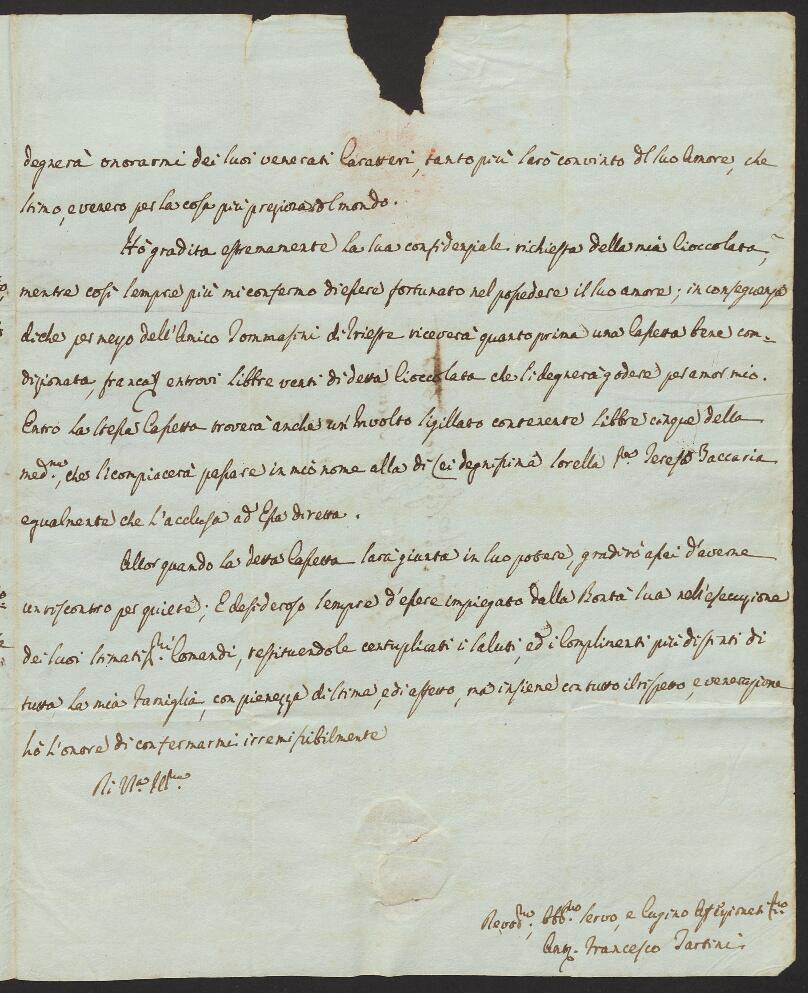 degnerà onorarmi dei suoi venerati Caratteri, tanto più sarò convinto del suo Amore, che
stimo, e venero per la cosa più preziosa del mondo.
Hò gradita estremamente la sua confidenziale richiesta della mia Cioccolata,
mentre così sempre più mi confermo d'essere fortunato nel possedere il suo amore; in conseguenza
di che per mezzo dell'Amico Tommasini di Trieste riceverà quanto prima una Cassetta bene con=
dizionata, franca, entrovi Libbre venti di detta Cioccolata che si degnerà godere per amor mio.
Entro la stessa Cassetta troverà anche un'Involto sigillato contenente Libbre cinque della
med.ma, che si compiacerà passare in mio nome alla di Lei degnissima sorella Teresa Baccaria
egualmente che l'acclusa ad Essa diretta.
Allor quando la detta Cassetta sarà giunta in suo potere, gradirò assai d'averne
un riscontro per quiete; E desideroso sempre d'essere impiegato dalla Bontà sua nell'esecuzione
dei suoi stimatissmi Comandi, restituendole centuplicati i saluti, ed i Complimenti più distinti di
tutta la mia Famiglia, con pienezza di stima, e di affetto, ma insieme con tutto il rispetto, e venerazione
hò l'onore di confermarmi irremissibilmente
Di V.a Ill.ma
Devod.mo, Obb.mo Servo, e Cugino Affezionatis.mo
Ant.o Francesco Tartini